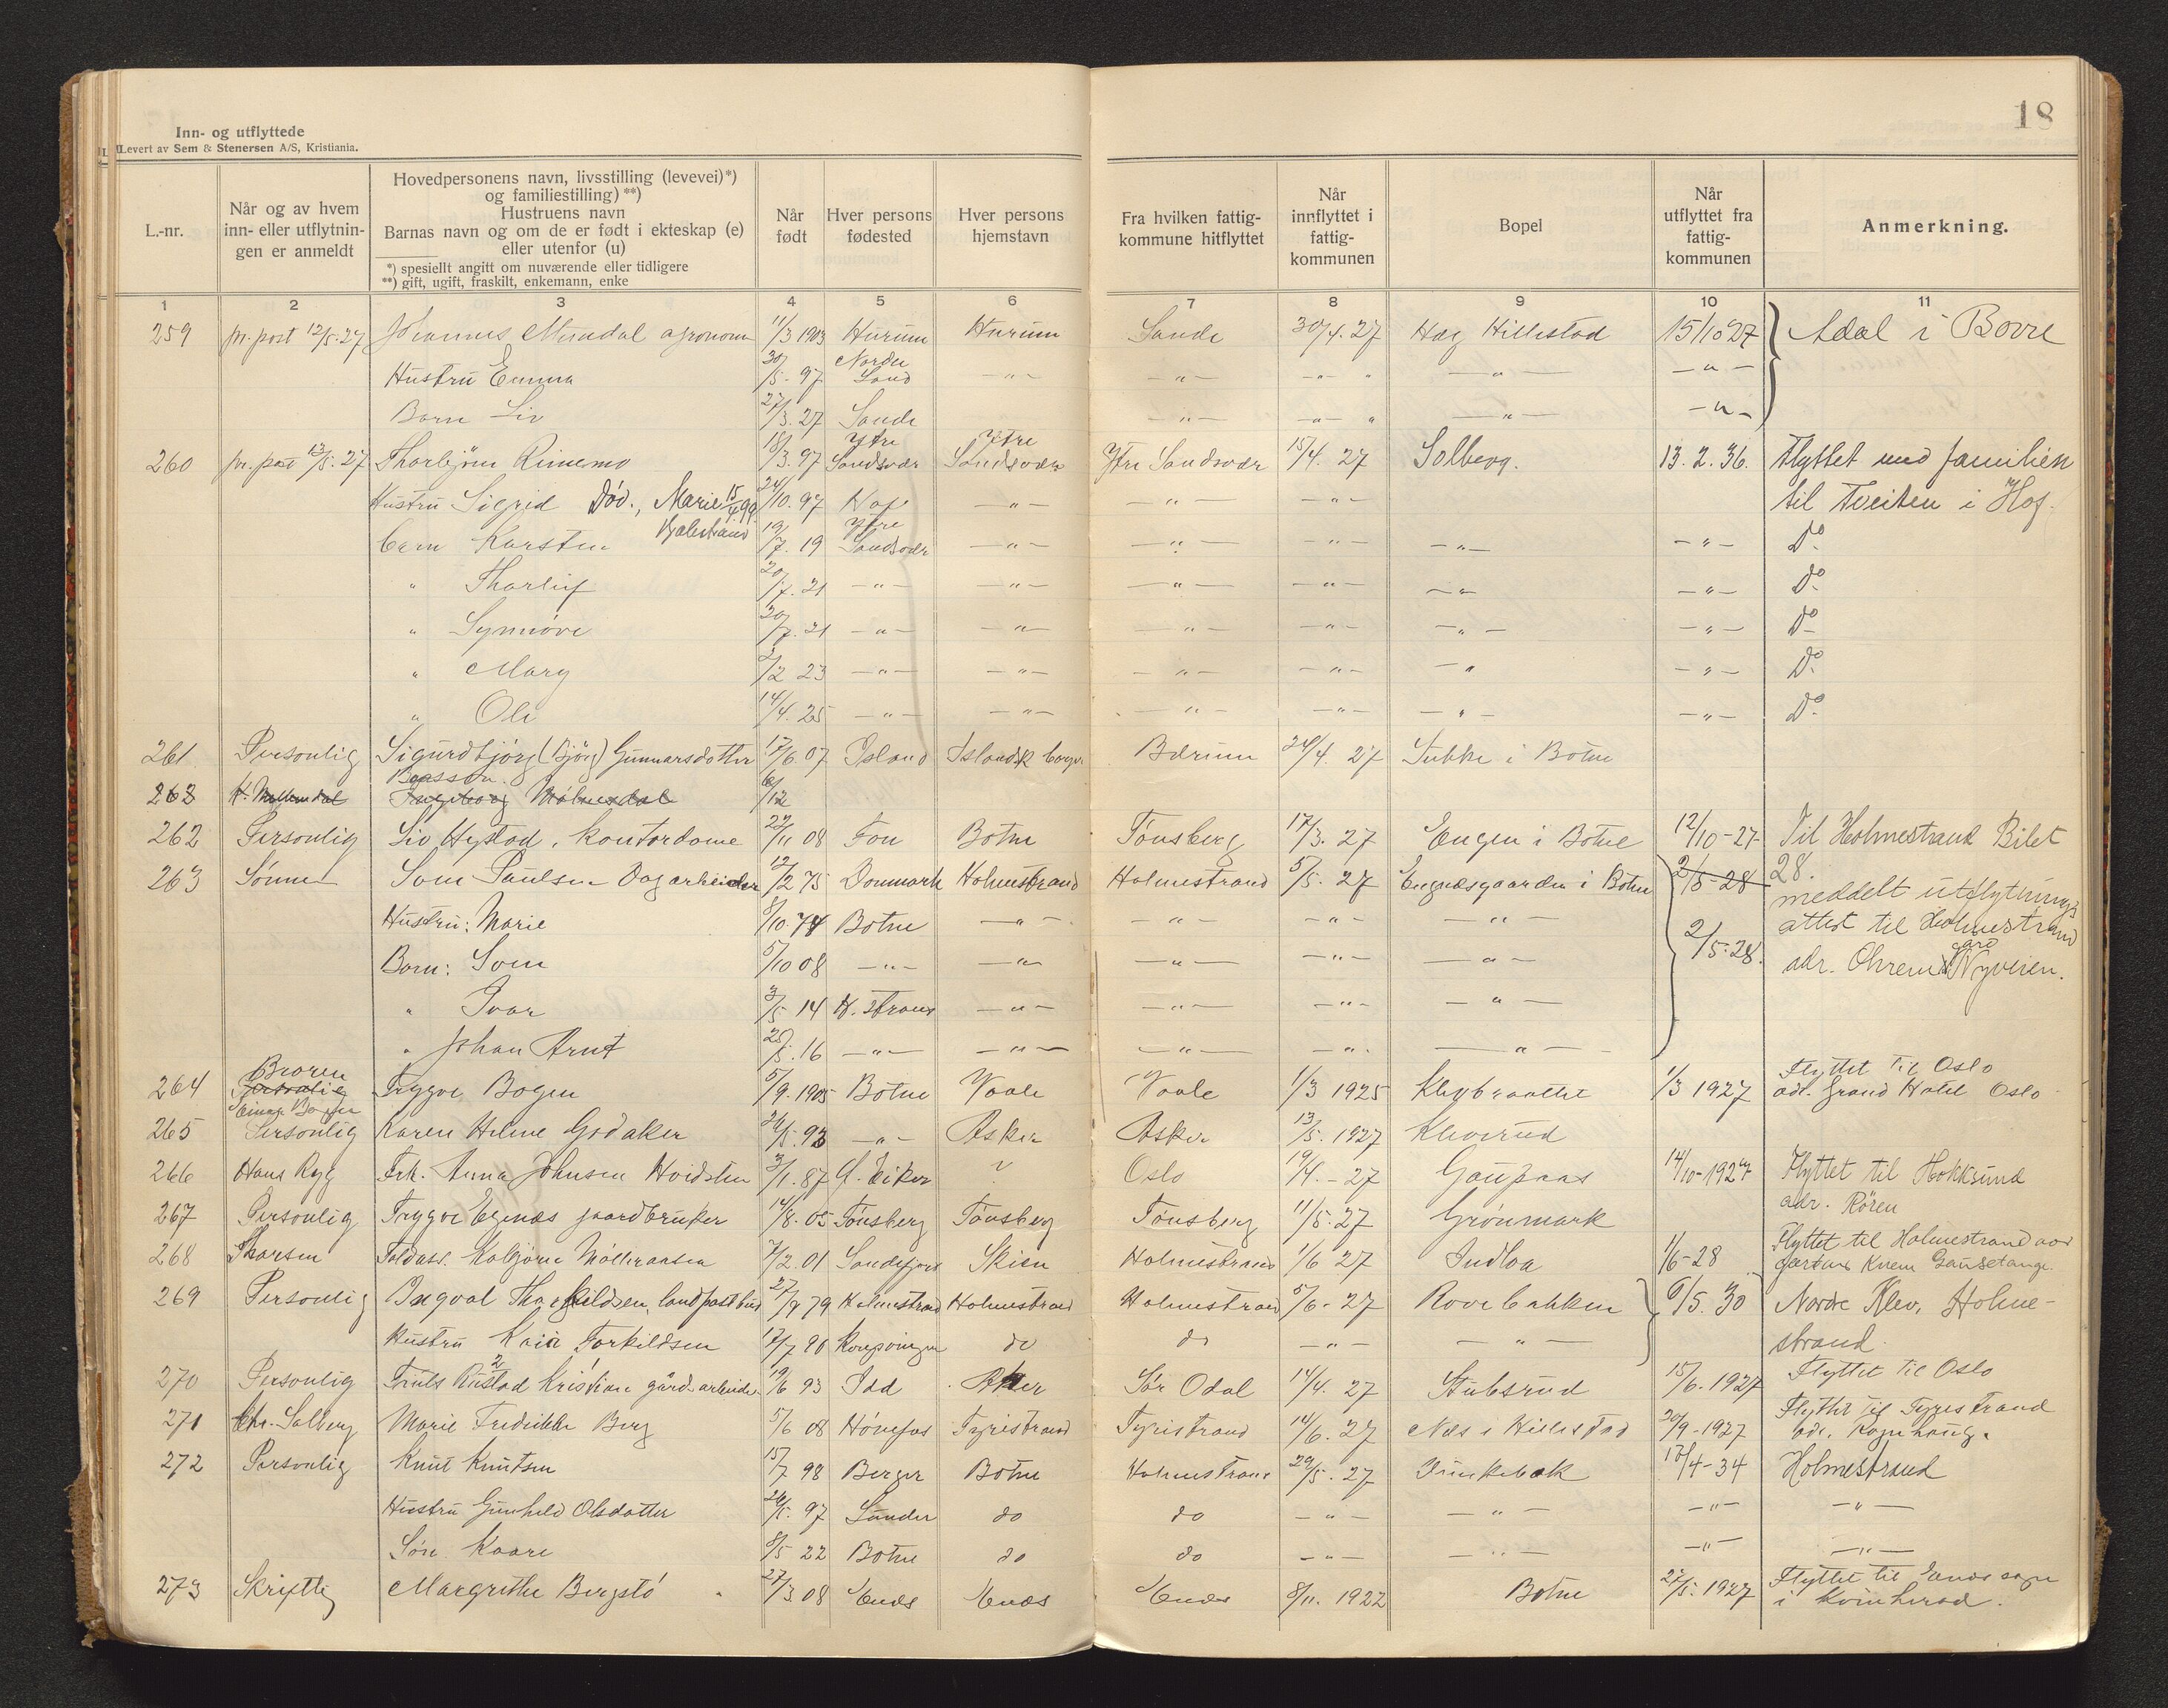 18
Inn- og utflyttede
Levert av Sem & Stenersen A/S, Kristiania.
L.-nr.
Når og av hvem inn- eller utflytnin- gen er anmeldt
Hovedpersonens navn, livsstilling (levevei)*)
og familiestilling) **)
Hustruens navn
Barnas navn og om de er født i ekteskap (e)
eller utenfor (u)
*) spesiellt angitt om nuværende eller tidligere
**) gift, ugift, fraskilt, enkemann, enke
Når født
Hver persons fødested
Hver persons hjemstavn
Fra hvilken fattig- kommune hitflyttet
Når innflyttet i fattig- kommunen
Bopel
Når utflyttet fra fattig- kommunen
Anmerkning.
1 2 3 4 5 6 7 8 9 10 11
259 pr. post 12/5-27 Johannes Mundal agronom 11/3 1903 Hurum Hurum Sande 30/4. 27 Hag Hillestad 15/10 27 Adal i Borre
Hustru Emma 30/5- 97 Nordre Land -"- -"- -"- " -"- -"-
Barn Liv 27/3. 27 Sande -"- -"- " -"- -"-
260 pr. post 12/5. 27 Thorbjörn Rimemo 18/3. 97 Ytre Sandsvær Ytre Sandsvær Ytre Sandsvær 15/4. 27 Solberg. 13. 2. 36. Flyttet med familien
Hustru Sigrid Död., Marie 15/4 99 24/10. 97 Hof -"- -"- -"- til Tveiten i Hof.
barn Karsten Balestrand 19/7. 19 Ytre Sandsvær -"- -"- -"- -"- -"- Do
" Thorleif 20/7. 21 -"- -"- -"- -"- -"- -"- Do
" Synnöve 20/7. 21 -"- -"- -"- -"- -"- -"- Do
" Mary 2/2 23 -"- -"- -"- -"- -" -"- Do
" Ole 14/4. 25 -"- -"- -"- -"- -"- -"- Do
261 Personlig Sigurdbjörg (Björg) Gunnarsdotter 17/6. 07 Island Islandsk borger Bærum 24/4. 27 Sukke i Botne
263 6/12
262 Personlig Liv Hystad, kontordame 22/11 08 Fon Botne Tönsberg 17/3. 27 Engen i Botne 12/10-27 Til Holmestrand Bilet
263 Sönnen Som Paulsen Dagarbeider 12/2 75 Danmark Holmestrand Holmestrand 5/5. 27 Engnæsgaarden i Botne 2/5-28 28.
meddelt utflytnings
Hustru: Marie 8/10. 74 Botne -"- -"- -"- -"- attest til Holmestrand
Barn: Som 5/10 08 -"- -"- -"- -"- -"- 2/5-28. adr. Ohrens gård Nyveien.
" Ivar 3/5 14 H. strand -"- -"- -"- -"-
" Johan Arnt 20/5. 16 -"- -"- -"- -"- -"-
264 Broren Personlig Einar Bogen Trygve Bogen 5/9. 1905 Botne Vaale Vaale 1/3 1925 1/3 1927 Flyttet til Oslo
adr. Grand Hotel Oslo
265 Personlig Karen Helene Godaker 24/5. 93 -"- Asker Asker 13/5. 1927 Kleverud
266 Hans Ryg Frk. Anna Johnsen Hvidsten 3/1. 87 ? Oslo 19/4. - 27 Gaupaas 14/10-1927 Flyttet til Hokksund
adr. Rören
267 Personlig Trygve Egenæs gaardbruker 14/8. 05 Tönsberg Tönsberg Tönsberg 11/5. 27 Grönmark
268 Thorsen 7/2. 01 Sandefjord Skien Holmestrand 1/6 27 Indlaa 1/6-28 Flyttet til Holmestrand
269 Personlig Ingval Thorkildsen, landpostbud 27/9 79 Holmestrand Holmestrand Holmestrand 5/6- 27 Rovebakken 6/5. 30 Nordre Klev, Holme-
Hustru Kaia Torkildsen 17/7 90 Kongsvinger do do -"- -"- strand.
270 Personlig Truls Rustad Kristian gårdsarbeider 19/6 93 Idd Aker Sör Odal 14/4. 27 Stubsrud 15/6. 1927 Flyttet til Oslo
271 Chr. Solberg Marie Fredrikke Berg 5/6 08 Hönefos Tyristrand Tyristrand 14/6. 27 Næs i Hillestad 30/9-1927 Flyttet til Tyristrand
272 Personlig Knut Knutsen 15/7 98 Berger Botne Holmestrand 29/5. 27 17/4-34 Holmestrand
Hustru Gunhild Olsdatter 24/5. 97 Sander do do -"- -"- -"- -"-
Sön Kaare 8/5 22 Botne do do -"- -"- -"- -"-
273 Skriftlig Margrethe Bergstö 27/3. 08 Enæs Enæs Enæs 8/11. 1922 Botne 27/5. 1927 Flyttet til Enæs sogn
i Kvinherad.